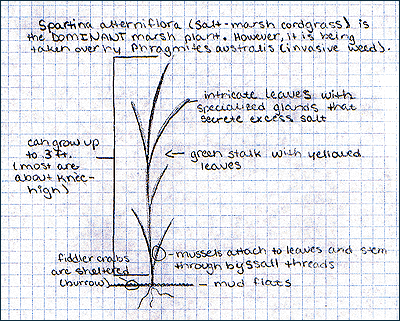 Spartina alterniflora (salt-marsh cordgrass) is
the DOMINANT marsh plant. However, it is being
taken over by Phragmites australis (invasive weed).
intricate leaves with
specialized glands that
secrete excess salt
can grow up
to 3 ft.
(most are
about knee-
high)
green stalk with yellowed
leaves
fiddler crabs
are sheltered
(burrow)
mussels attach to leaves and stem
through byssall threads
mud flats